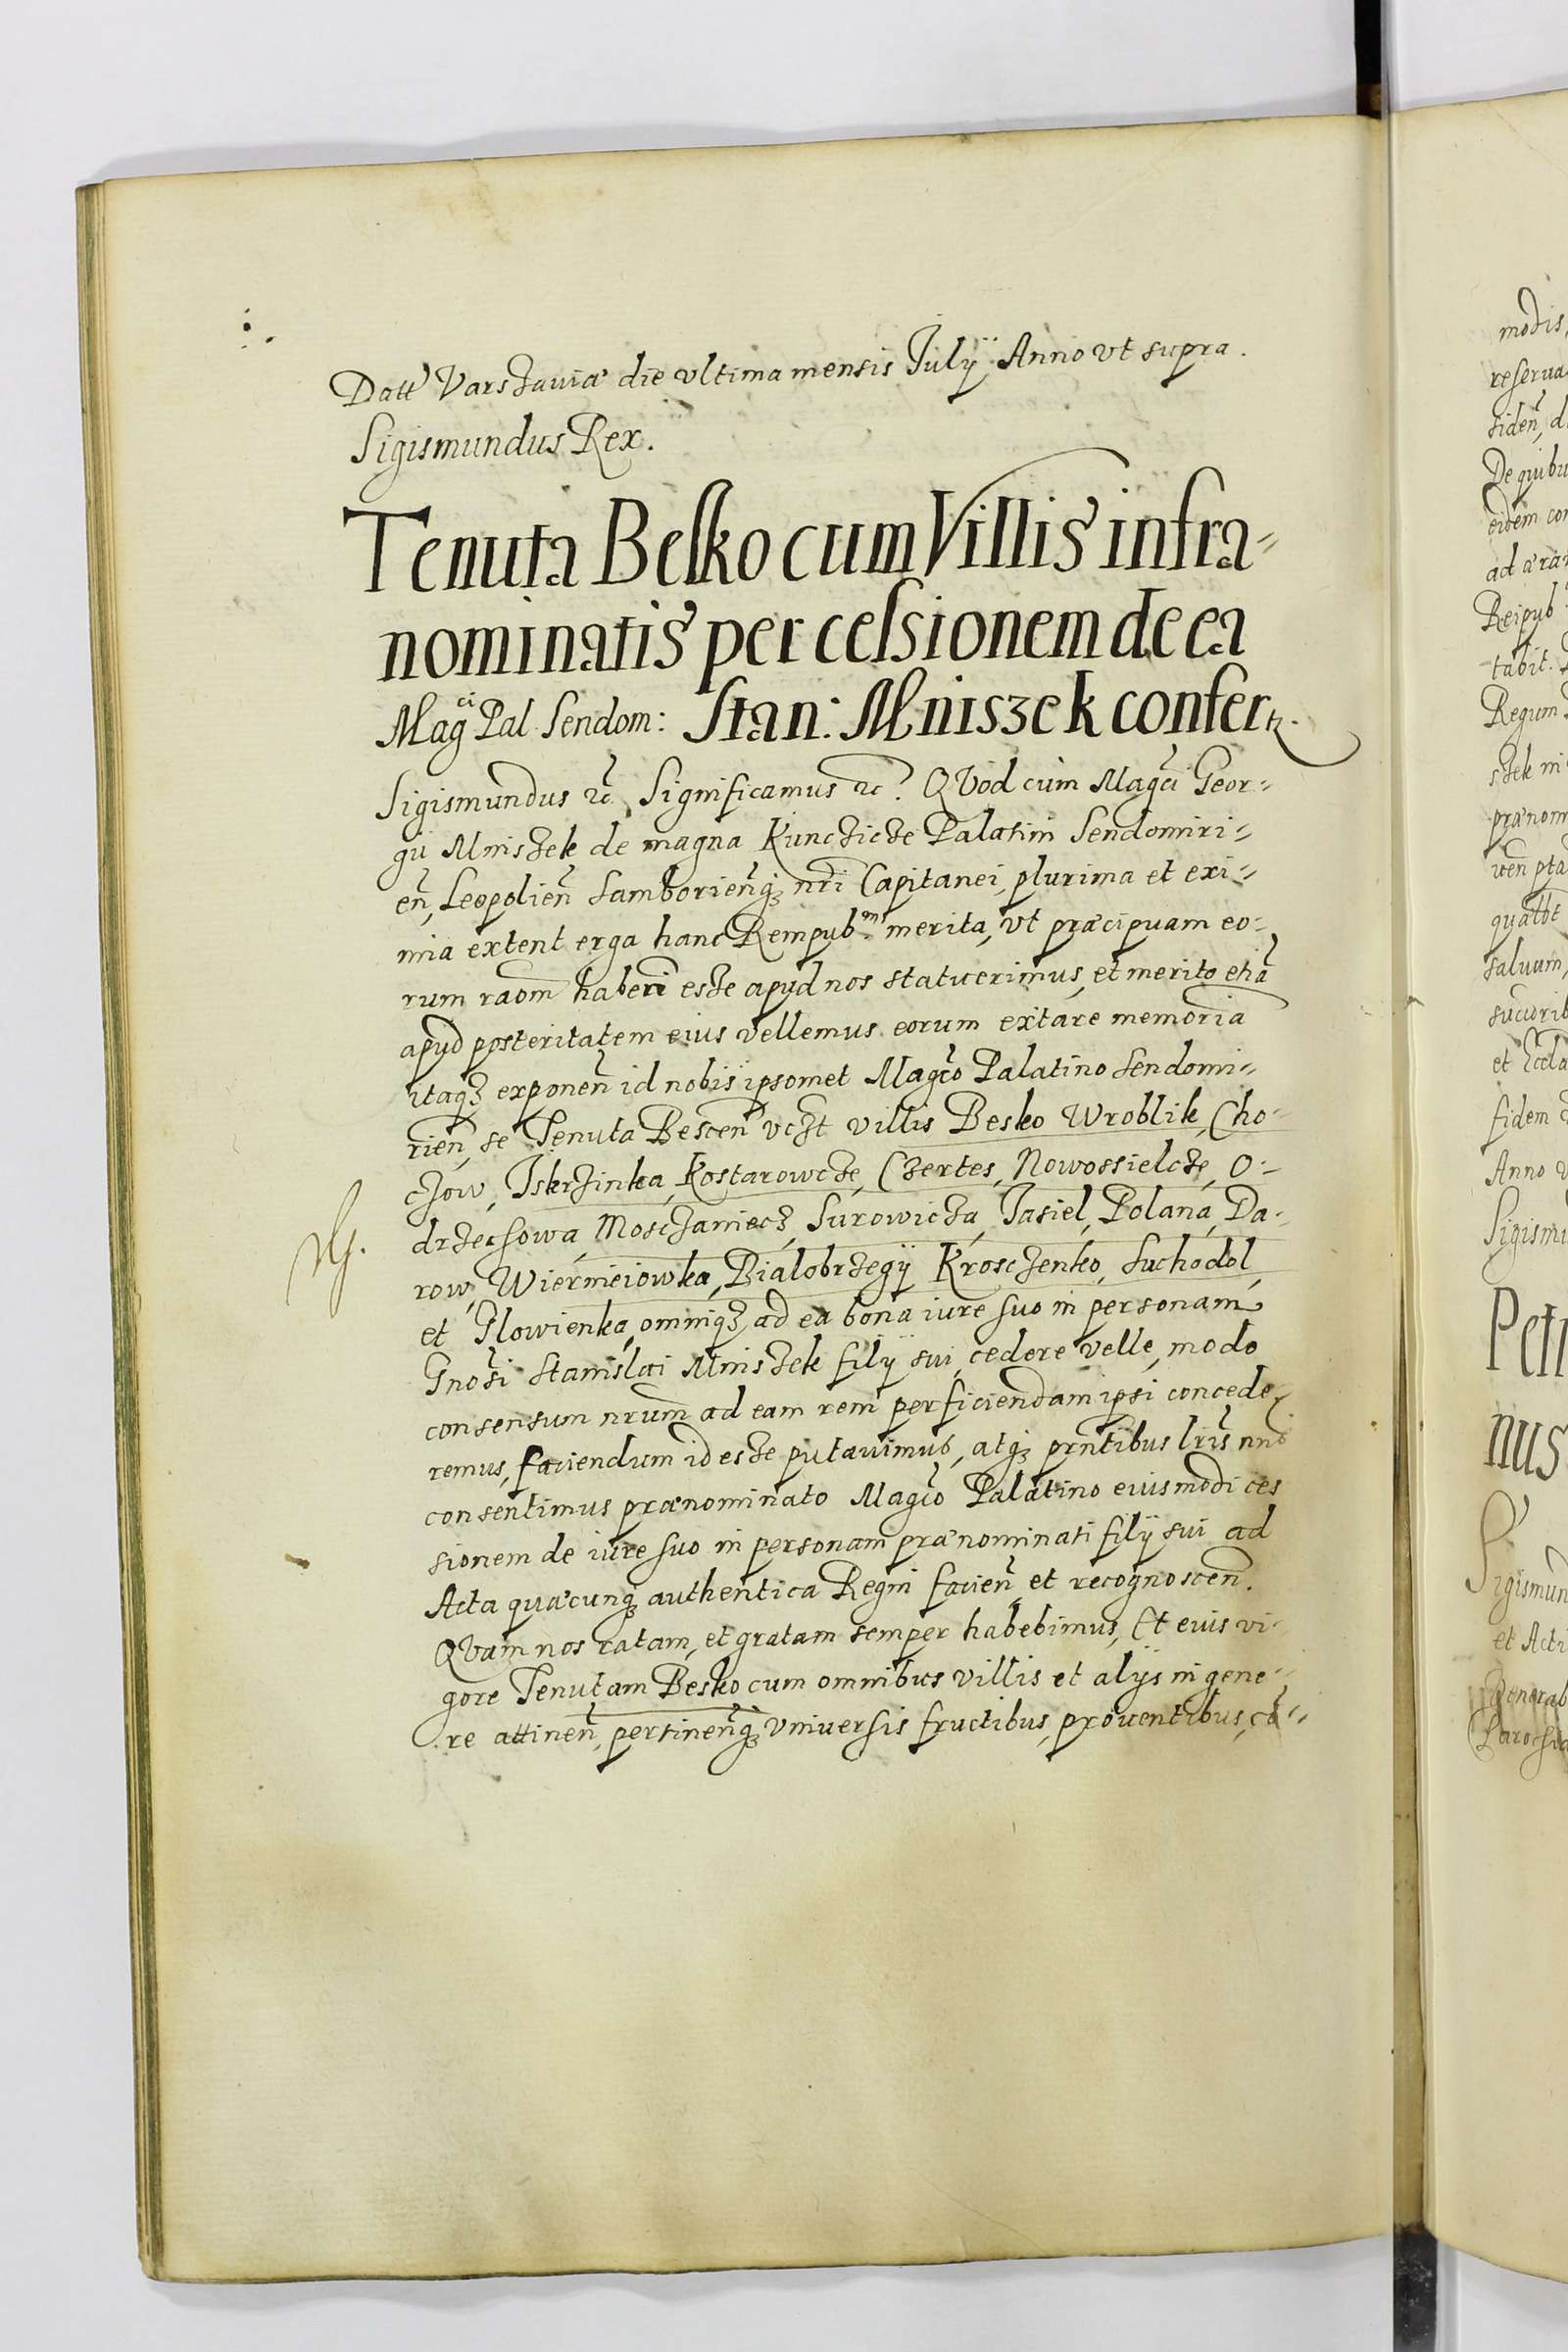 Datt Varszauiæ die vltima mensis Julÿ Anno vt supra.
Sigismundus Rex.
Tenuta Besko cum Villis infra-
nominatis per cessionem de ea
Mag^ci Pal. Sendom: Stan: Mniszek confertr.
Sigismundus etc. Significamus etc. Quod cum Magci Geor-
gii Mniszek de magna Kunczicze Palatini Sendomiri-
en, Leopolien Samborienq nri Capitanei, plurima et exi-
mia extent erga hanc Rempub^m merita, vt præcipuam eo-
rum raom haberi esze apud nos statuerimus, et merito etia
apud posteritatem eius vellemus eorum extare memoria
itaq exponen id nobis ipsomet Magco Palatino Sendomi-
rien, se Tenuta Bescen vczt villis Besko Wroblik, Cho-
czow, Iskrzinka, Kostarowcze, Czertes, Nowossielcze, O-
drzechowa, Mosczaniecz, Surowicza, Jasiel, Polana, Da-
row, Wiernieiowka, Bialobrzegÿ Krosczenko, Suchodol,
et Glowienka, omniq ad ea bona iure suo in personam
Gnosi Stanislai Mniszek filÿ sui, cedere velle, modo
consensum nrum ad eam rem perficiendam ipsi concede-
remus, faciendum id esze putauimus, atq prntibus lris nris
consentimus prænominato Magco Palatino eiusmodi ces
sionem de iure suo in personam prænominati filÿ sui ad
Acta quæcunq authentica Regni facien et recognoscen.
Quam nos ratam, et gratam semper habebimus, Et eius vi-
gore Tenutam Besko cum omnibus villis et alÿs in gene-
re attinen, pertinenq vniuersis fructibus, prouentibus, co-
modis,
reserua
siden, d
De quibu
eidem con
ad æra
Reipub
tabit.
Regum
szek in
prænom
uen pta
saluam,
et Eccla
fidem
Anno v
Sigismu
Petr
nus
Sigismun
et Acti
Generab
Parochia